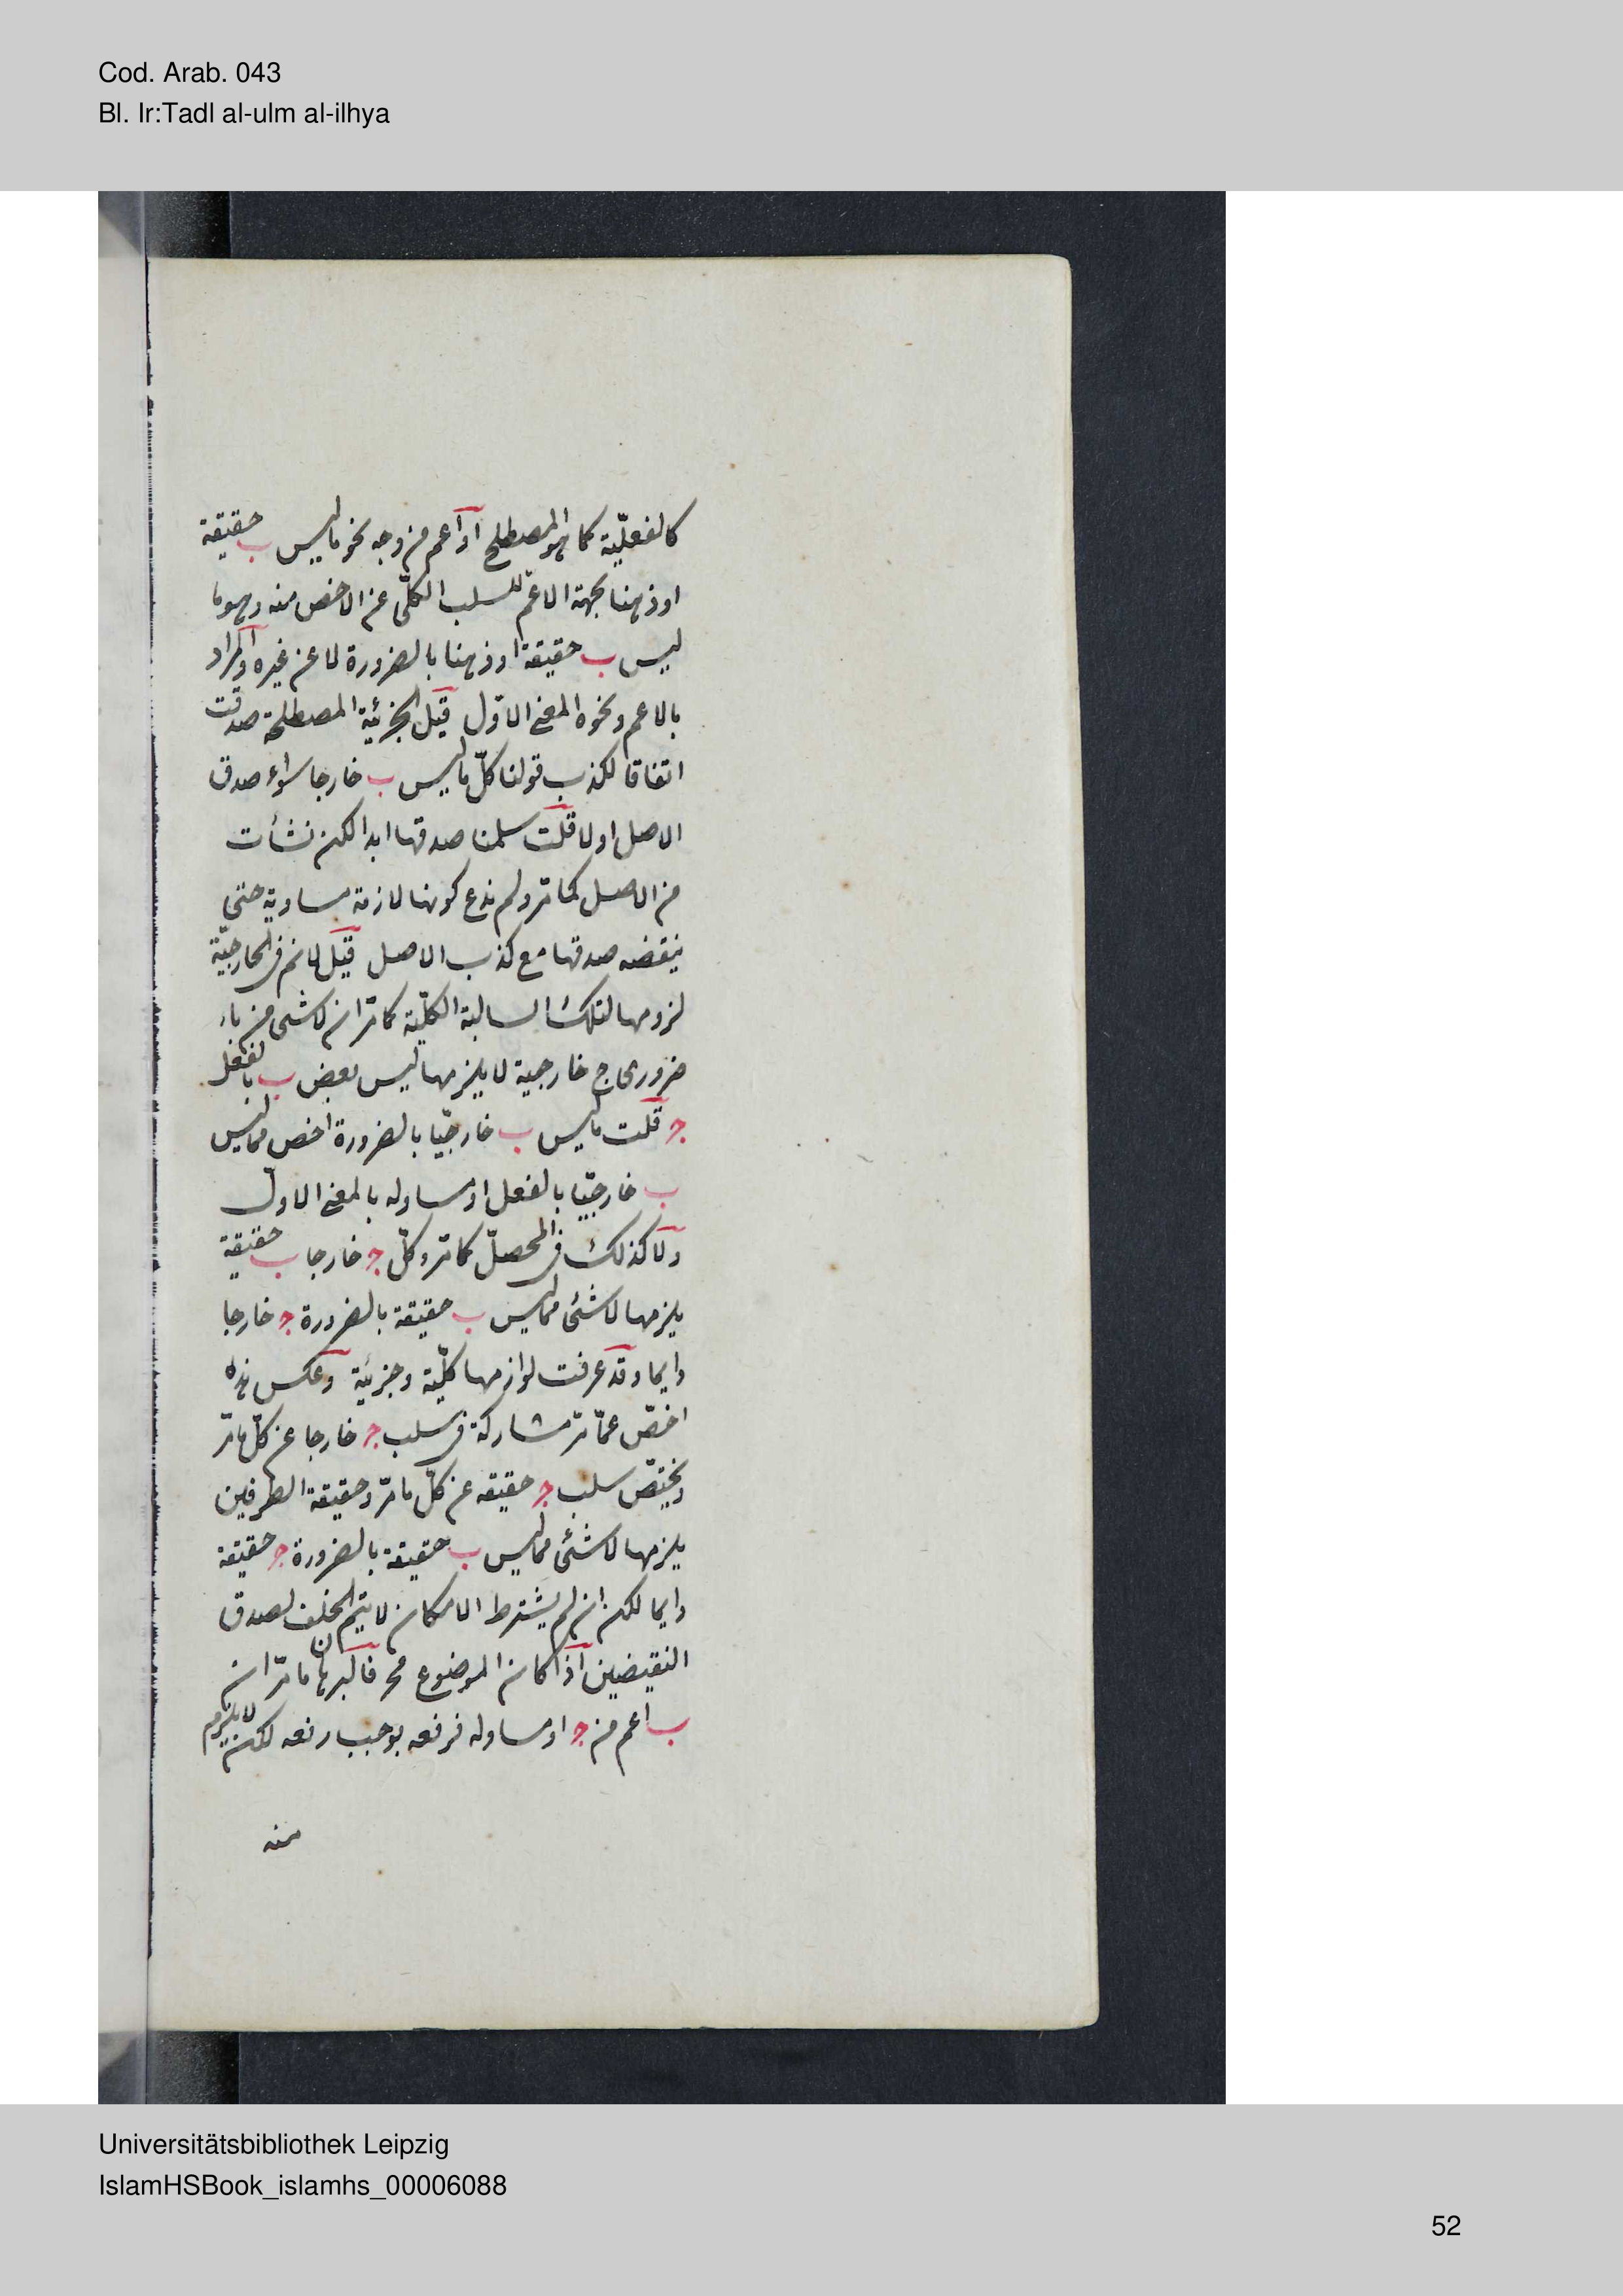 Cod. Arab. 043
Bl. Ir:Tadl al-ulm al-ilhya
كالفعليّة كما هو المصطلح او اعم من وجه نحو ما ليس ب حقيقة
او ذهنا بجهة الاعمّ للسلب الكلّى عن الاخص منه وهو ما
ليس ب حقيقة او ذهنا بالضرورة لا عن غيره والمراد
بالاعم ونحوه المعنى الاوّل قيل الجزئية المصطلحة صدقت
اتفاقا لكذب قولنا كلّ ما ليس ب خارجا سواء صدق
الاصل او لا قلت سلمنا صدقها ابدا لكن نشأت
من الاصل كما مرّ ولم ندع كونها لازمة مساوية حتى
ينقضه صدقها مع كذب الاصل قيل لا نم فى الخارجيّة
لزومها لتلك السالبة الكليّة كما مرّ ان لا شى من
ضرورى ج خارجية لا يلزمها ليس بعض ب بالفعل
ج قلت ما ليس ب خارجيّا بالضرورة اخص مما ليس
ب خارجيّا بالفعل او مساو له بالمعنى الاول
ولا كذلك فى المحصلّ كما مرّ وكلّ ج خارجا ب حقيقة
يلزمها لا شئ مما ليس ب حقيقة بالضرورة ج خارجا
دايما وقد عرفت لوازمها كليّة وجزئية وعكس هذه
اخصّ عمّا مرّ مشاركة فى سلب ج خارجا عن كلّ ما مرّ
ويختصّ سلب ج حقيقة عن كلّ ما مرّ وحقيقة الطرفين
يلزمها لا شئ مما ليس ب حقيقة بالضرورة ج حقيقة
دايما لكن ان لم يشترط الامكان لا يتم الخلف لصدق
النقيضين اذا كان الموضوع مح فالبرهان ما مرّ ان
ب اعم من ج او مساو له فرفعه يوجب رفعه لكن لا يلزم
منه
Universitätsbibliothek Leipzig
IslamHSBook_islamhs_00006088
52